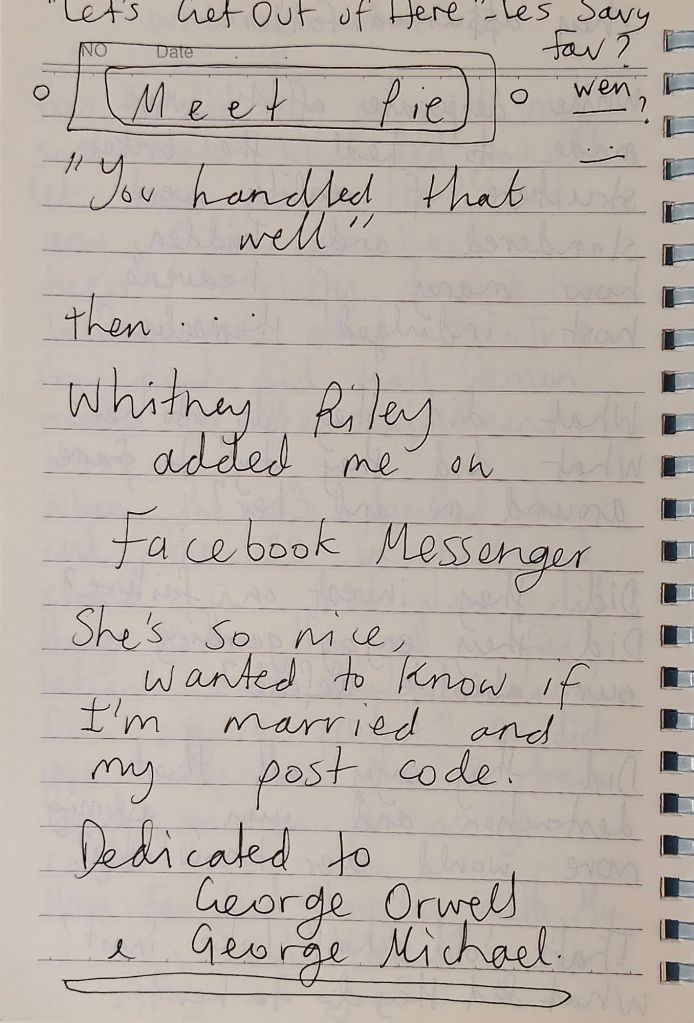 "Let's Get Out of Here" - Les Savy
Fav?
NO Date
Meet Pie
wen?
"You handled that
well"
then...
Whitney Riley
added me on
Facebook Messenger
She's so nice,
wanted to know if
I'm married and
my post code.
Dedicated to
George Orwell
& George Michael.